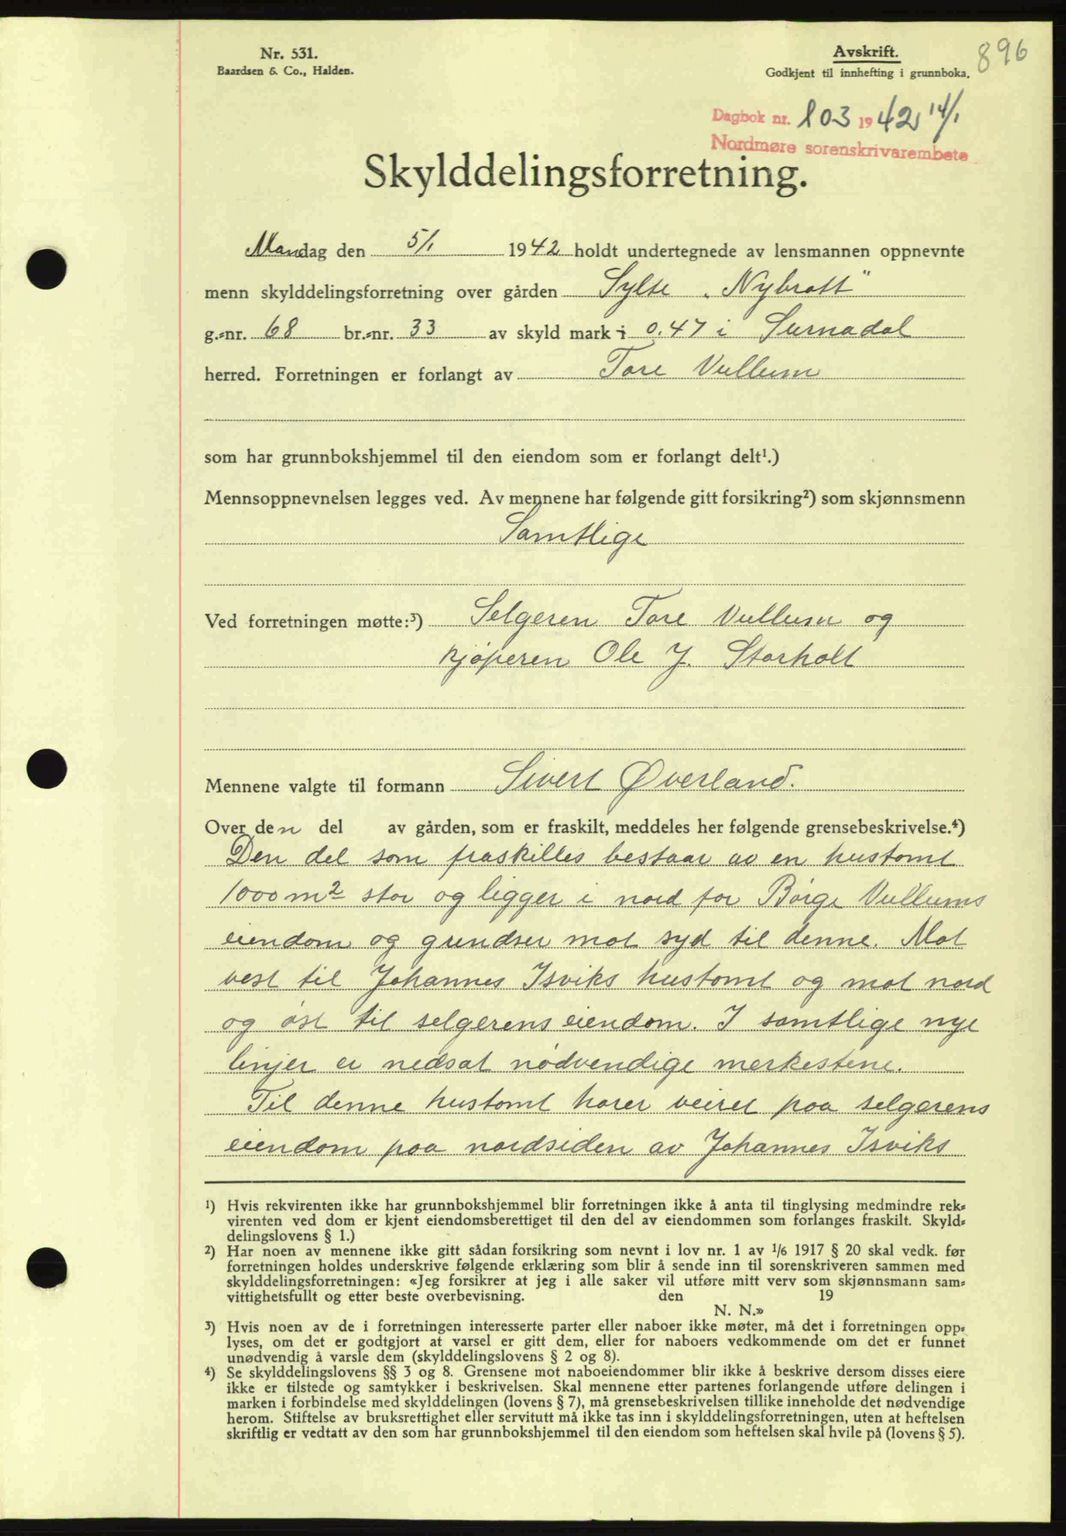 Nr. 531.
Baardsen & Co., Halden.
Avskrift.
Godkjent til innhefting i grunnboka.
896
Dagbok nr. 103 1942 14/1
Nordmøre sorenskrivarembete
Skylddelingsforretning.
Mandag den 5/1 1942 holdt undertegnede av lensmannen oppnevnte
menn skylddelingsforretning over gården Sylte „Nybrott"
g.-nr. 68 br.-nr. 33 av skyld mark i 0.47 i Surnadal
herred. Forretningen er forlangt av Tore Vullum
som har grunnbokshjemmel til den eiendom som er forlangt delt¹.)
Mennsoppnevnelsen legges ved. Av mennene har følgende gitt forsikring²) som skjønnsmenn
Samtlige
Ved forretningen møtte:³) Selgeren Tore Vullum og
kjøperen Ole J. Storholt
Mennene valgte til formann Sivert Øverland.
Over den del av gården, som er fraskilt, meddeles her følgende grensebeskrivelse.⁴)
Den del som fraskilles bestaar av en hustomt
1000 m² stor og ligger i nord for Børge Vullums
eiendom og grundser mot syd til denne. Mot
vest til Johannes Isviks hustomt og mot nord
og øst til selgerens eiendom. I samtlige nye
linjer er nedsat nødvendige merkestene.
Til denne hustomt hører veiret paa selgerens
eiendom paa nordsiden av Johannes Isviks
¹) Hvis rekvirenten ikke har grunnbokshjemmel blir forretningen ikke å anta til tinglysing medmindre rek-
virenten ved dom er kjent eiendomsberettiget til den del av eiendommen som forlanges fraskilt. Skyld-
delingslovens § 1.)
²) Har noen av mennene ikke gitt sådan forsikring som nevnt i lov nr. 1 av 1/6 1917 § 20 skal vedk. før
forretningen holdes underskrive følgende erklæring som blir å sende inn til sorenskriveren sammen med
skylddelingsforretningen: «Jeg forsikrer at jeg i alle saker vil utføre mitt verv som skjønnsmann sam-
vittighetsfullt og etter beste overbevisning. den 19
N. N.»
³) Hvis noen av de i forretningen interesserte parter eller naboer ikke møter, må det i forretningen opp-
lyses, om det er godtgjort at varsel er gitt dem, eller for naboers vedkommende om det er funnet
unødvendig å varsle dem (skylddelingslovens § 2 og 8).
⁴) Se skylddelingslovens §§ 3 og 8. Grensene mot naboeiendommer blir ikke å beskrive dersom disses eiere
ikke er tilstede og samtykker i beskrivelsen. Skal mennene etter partenes forlangende utføre delingen i
marken i forbindelse med skylddelingen (lovens § 7), må grensebeskrivelsen tillike inneholde det nødvendige
herom. Stiftelse av bruksrettighet eller servitutt må ikke tas inn i skylddelingsforretningen, uten at heftelsen
skriftlig er vedtatt av den som har grunnbokshjemmel til den eiendom som heftelsen skal hvile på (lovens § 5).